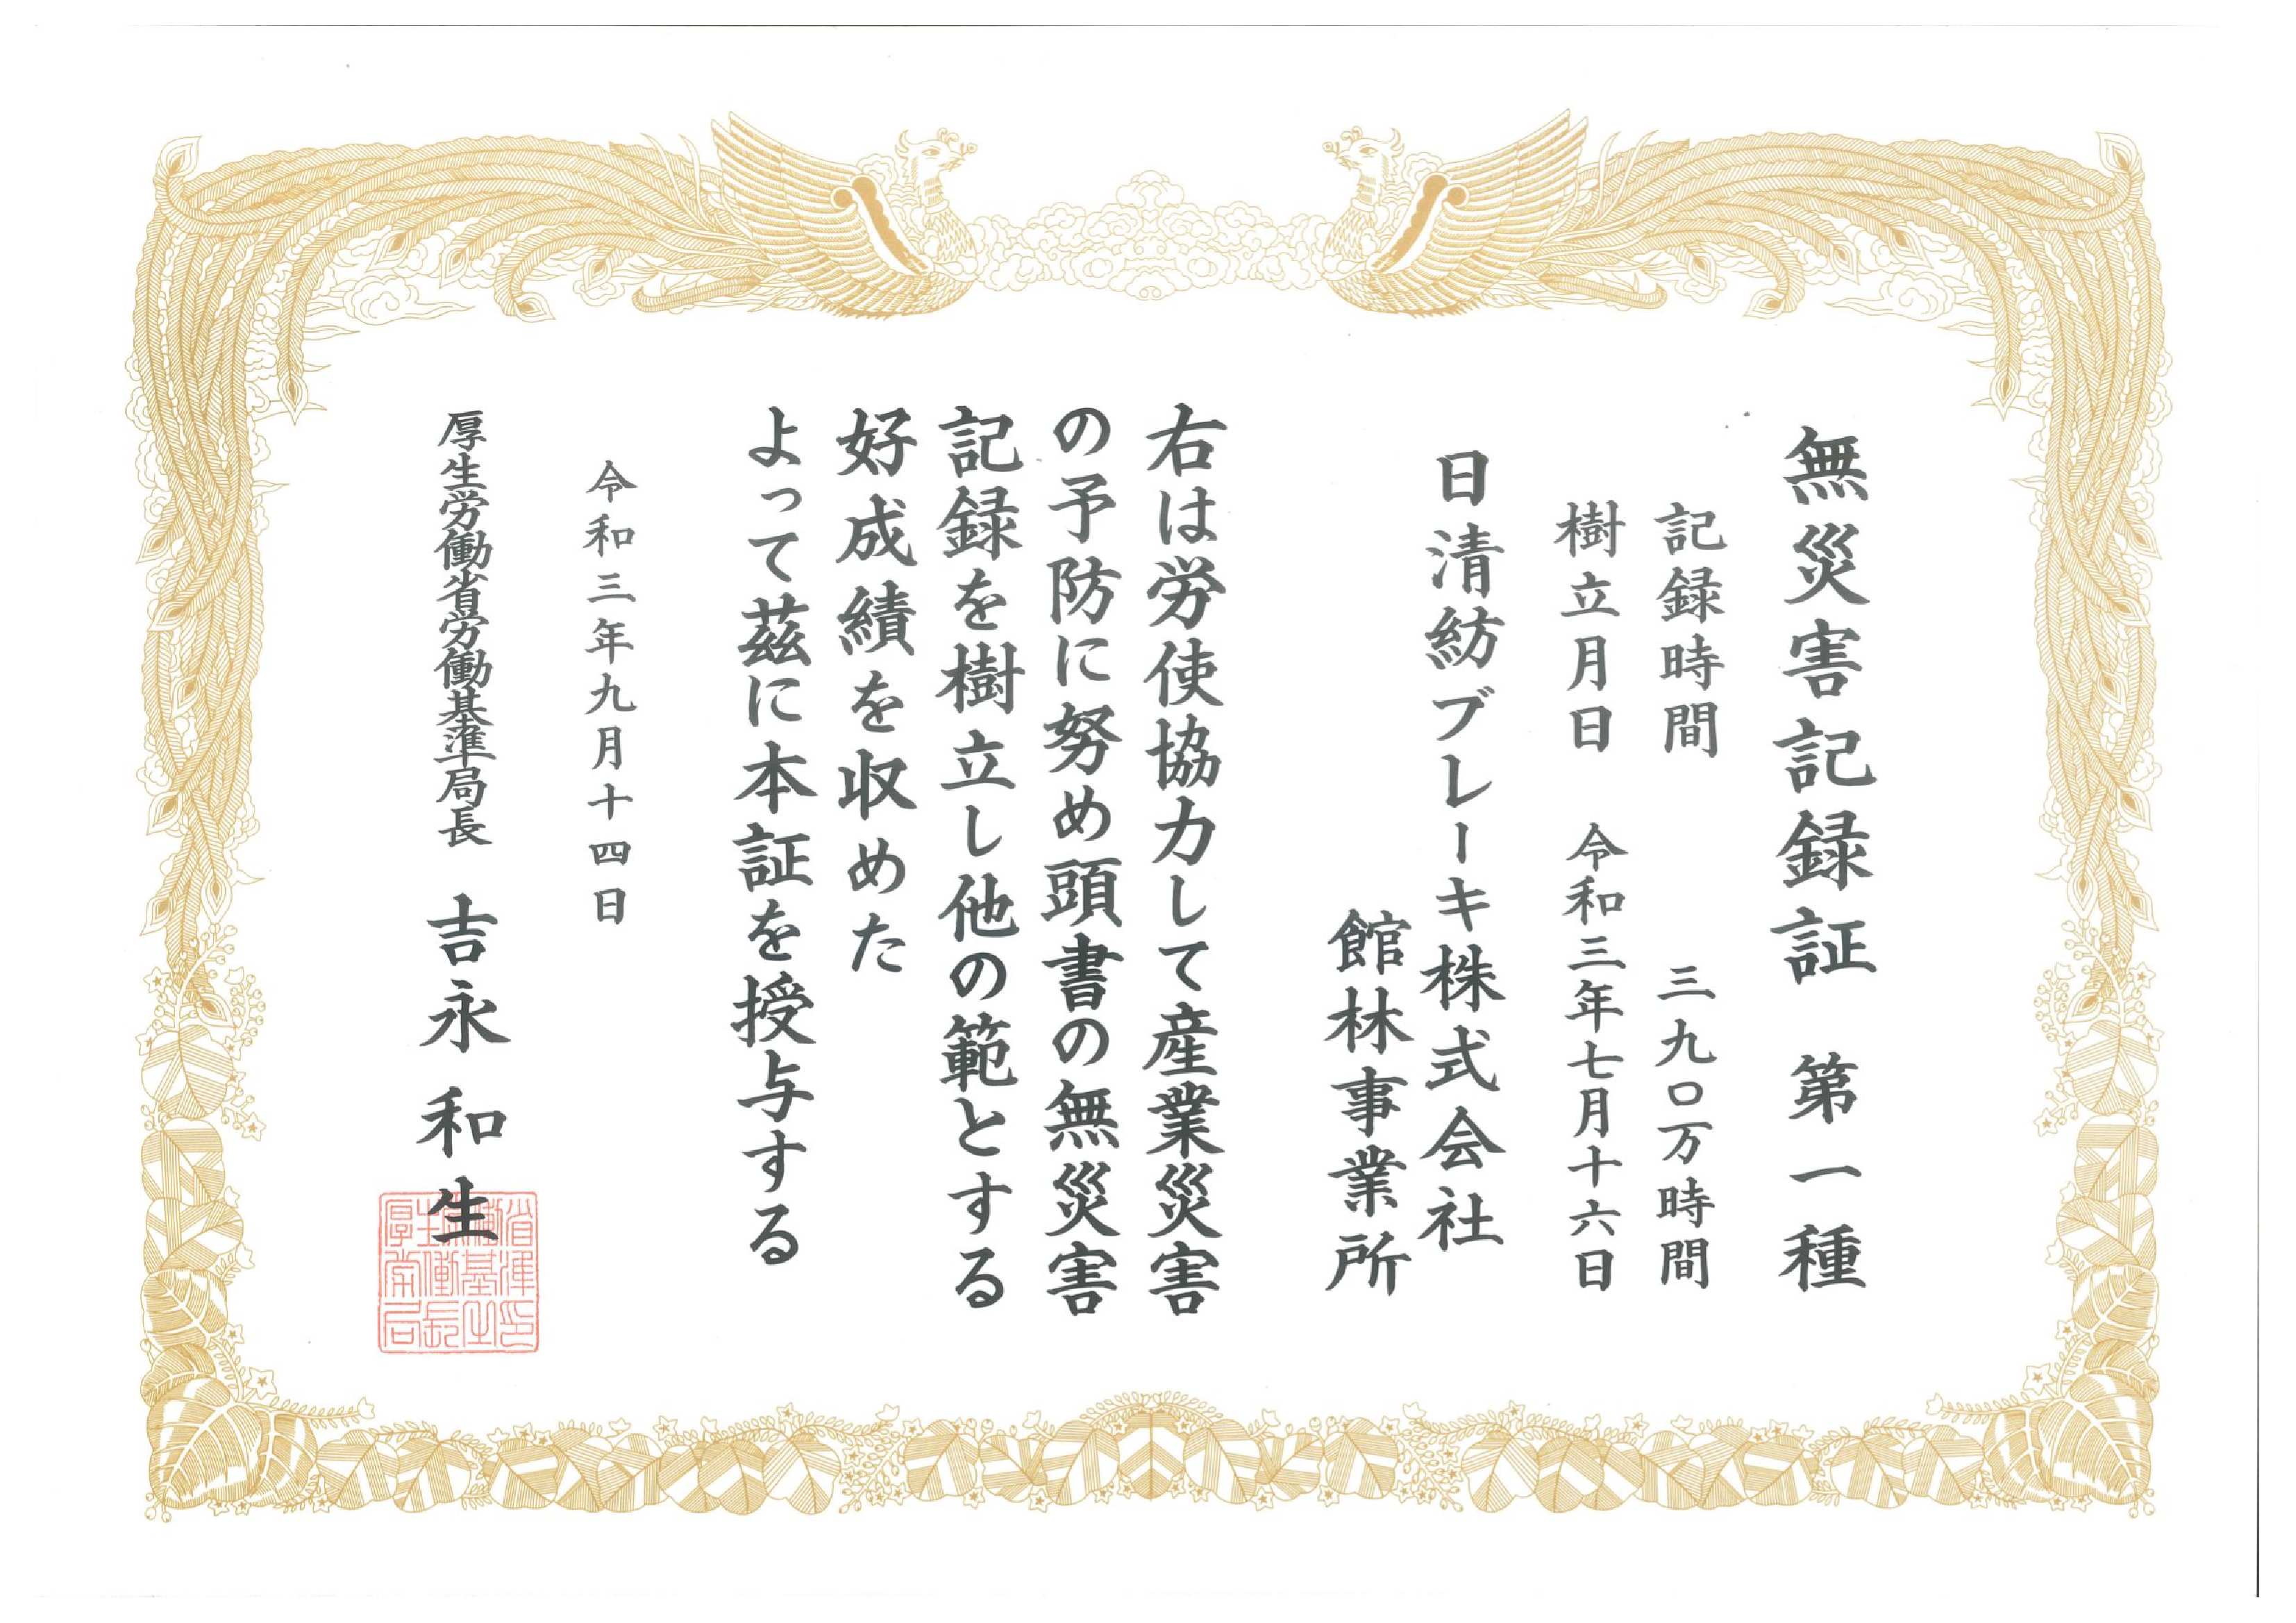 無災害記録証 第一種
記録時間 三九〇万時間
樹立月日 令和三年七月十六日
日清紡ブレーキ株式会社
館林事業所
右は労使協力して産業災害
の予防に努め頭書の無災害
記録を樹立し他の範とする
好成績を収めた
よって茲に本証を授与する
令和三年九月十四日
厚生労働省労働基準局長 吉永和生